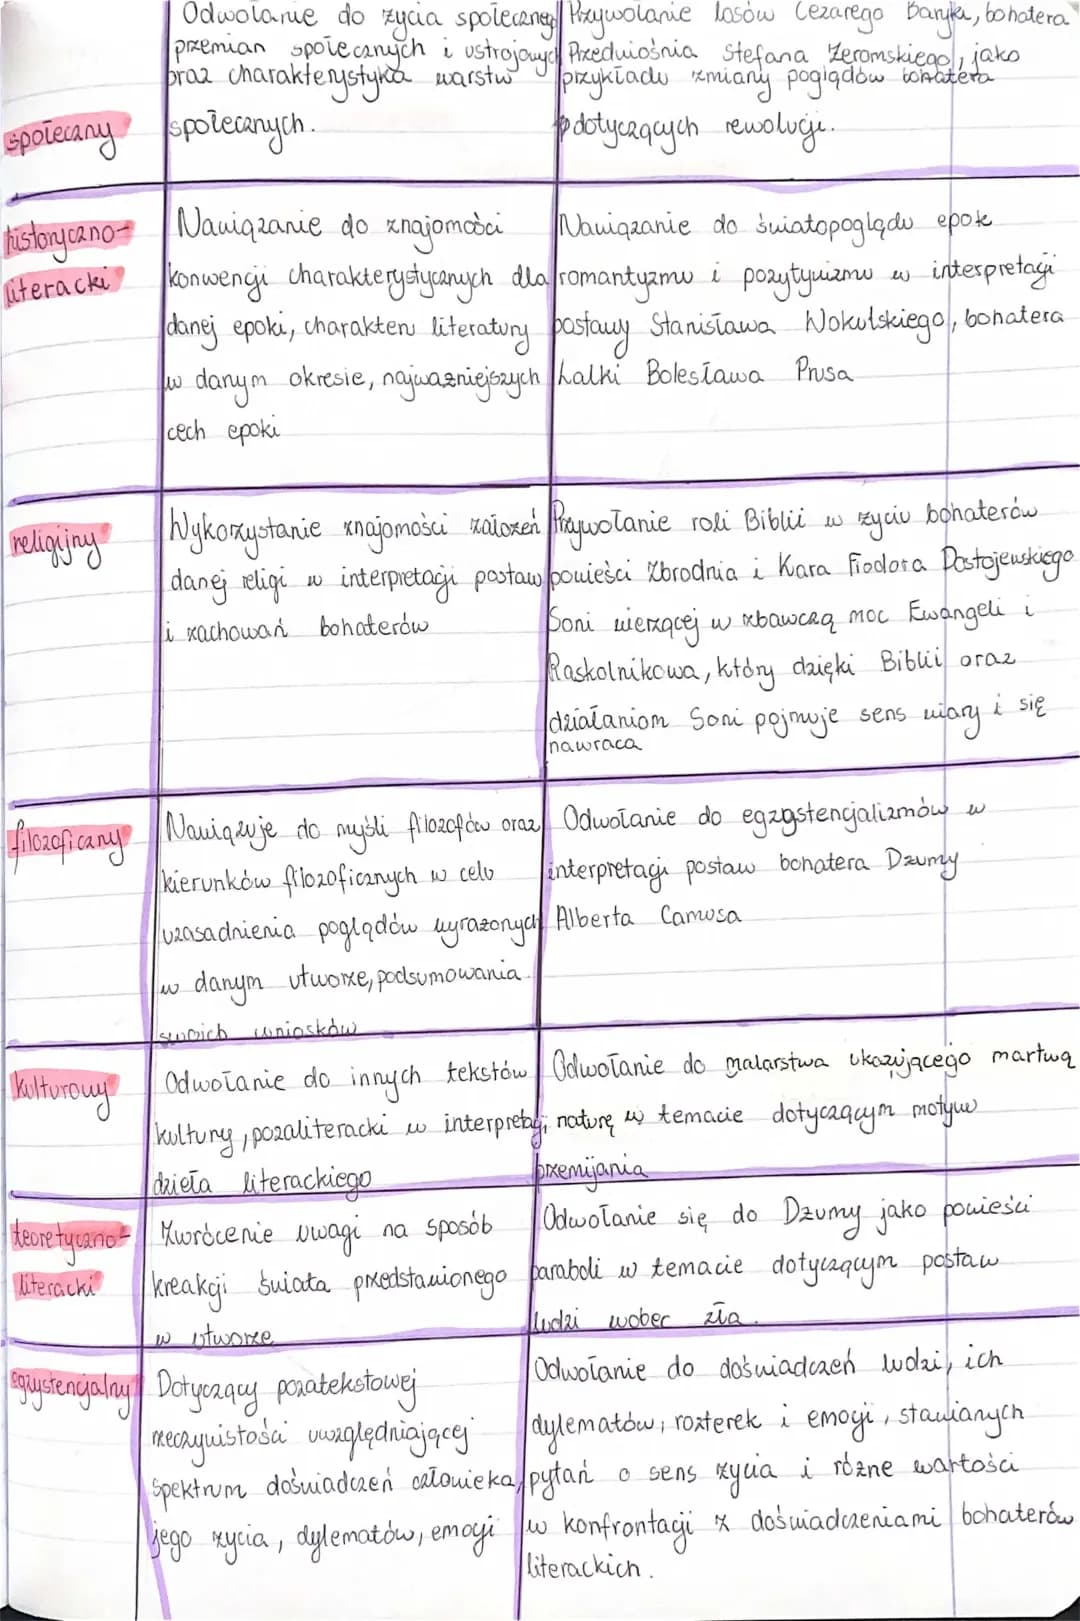 Odwołanie do życia społecznego
przemian społecznych i ustrojowych
oraz charakterystyka warstw
społecznych.
Przywołanie losów Cezarego Baryki, bohatera
Przedwiośnia Stefana Żeromskiego, jako
przykładu zmiany poglądów bohatera
dotyczących rewolucji.
społeczny
historyczno-
literacki
Nawiązanie do znajomości
konwencji charakterystycznych dla
danej epoki, charakteru literatury
w danym okresie, najważniejszych
cech epoki
Nawiązanie do światopoglądu epok
romantyzmu i pozytywizmu w interpretacji
postawy Stanisława Wokulskiego, bohatera
Lalki Bolesława Prusa
religijny
Wykorzystanie znajomości założeń
danej religi w interpretacji postaw
i zachowań bohaterów
Przywołanie roli Biblii w życiu bohaterów
powieści Zbrodnia i Kara Fiodora Dostojewskiego
Soni wierzącej w zbawczą moc Ewangeli i
Raskolnikowa, który dzięki Biblii oraz
działaniom Soni pojmuje sens wiary i się
nawraca
filozoficzny
Nawiązuje do myśli filozofów oraz
kierunków filozoficznych w celu
uzasadnienia poglądów wyrażonych
w danym utworze, podsumowania
swoich wniosków
Odwołanie do egzystencjalizmów w
interpretacji postaw bohatera Dżumy
Alberta Camusa
kulturowy
Odwołanie do innych tekstów
kultury, pozaliteracki w interpretacji
dzieła literackiego
Odwołanie do malarstwa ukazującego martwą
naturę w temacie dotyczącym motyw
przemijania
teoretyczno-
literacki
Zwrócenie uwagi na sposób
kreakcji świata przedstawionego
w utworze
Odwołanie się do Dżumy jako powieści
paraboli w temacie dotyczącym postaw
ludzi wobec zła.
egzystencjalny
Dotyczący pozatekstowej
rzeczywistości uwzględniającej
spektrum doświadczeń człowieka,
jego życia, dylematów, emocji
Odwołanie do doświadczeń ludzi, ich
dylematów, rozterek i emocji, stawianych
pytań o sens życia i różne wartości
w konfrontacji z doświadczeniami bohaterów
literackich.